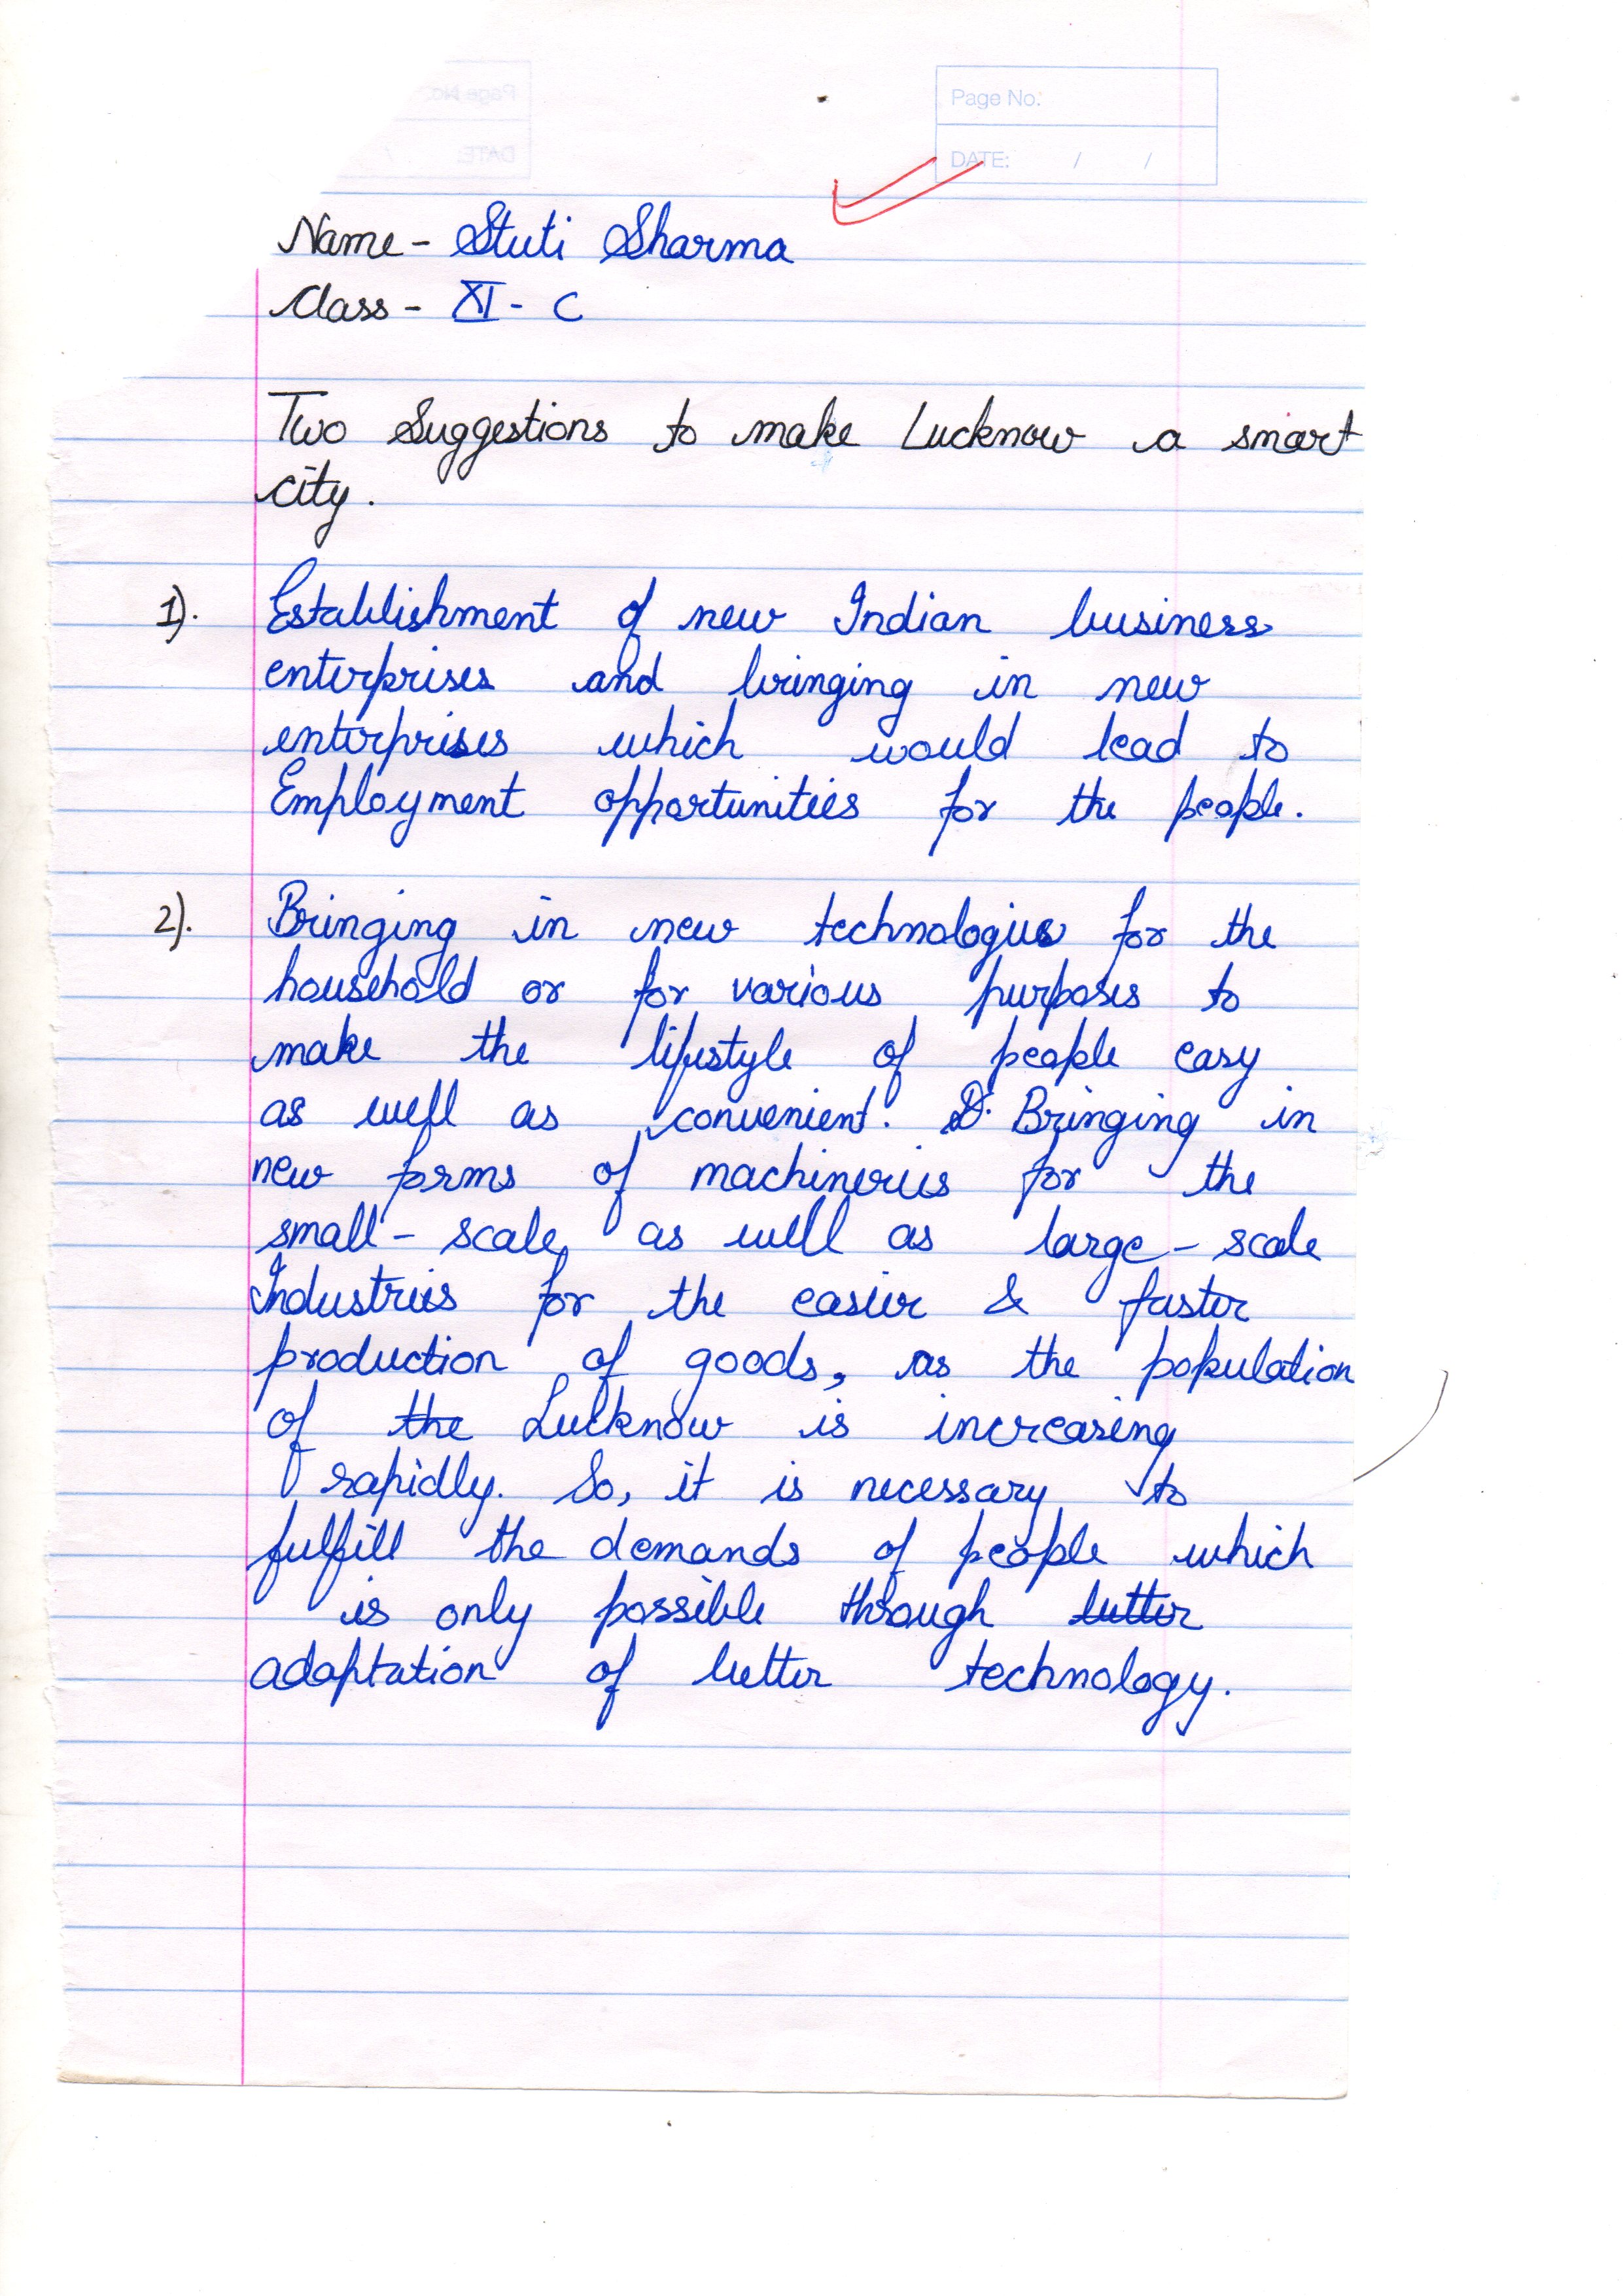 Page No:
DATE: / /
Name - Stuti Sharma
Class - XI - C
Two Suggestions to make Lucknow a smart
city.
1). Establishment of new Indian business
enterprises and bringing in new
enterprises which would lead to
Employment opportunities for the people.
2). Bringing in new technologies for the
household or for various purposes to
make the lifestyle of people easy
as well as convenient. Bringing in
new forms of machineries for the
small-scale as well as large-scale
Industries for the easier & faster
production of goods, as the population
of the Lucknow is increasing
rapidly. So, it is necessary to
fulfill the demands of people which
is only possible through better
adaptation of better technology.